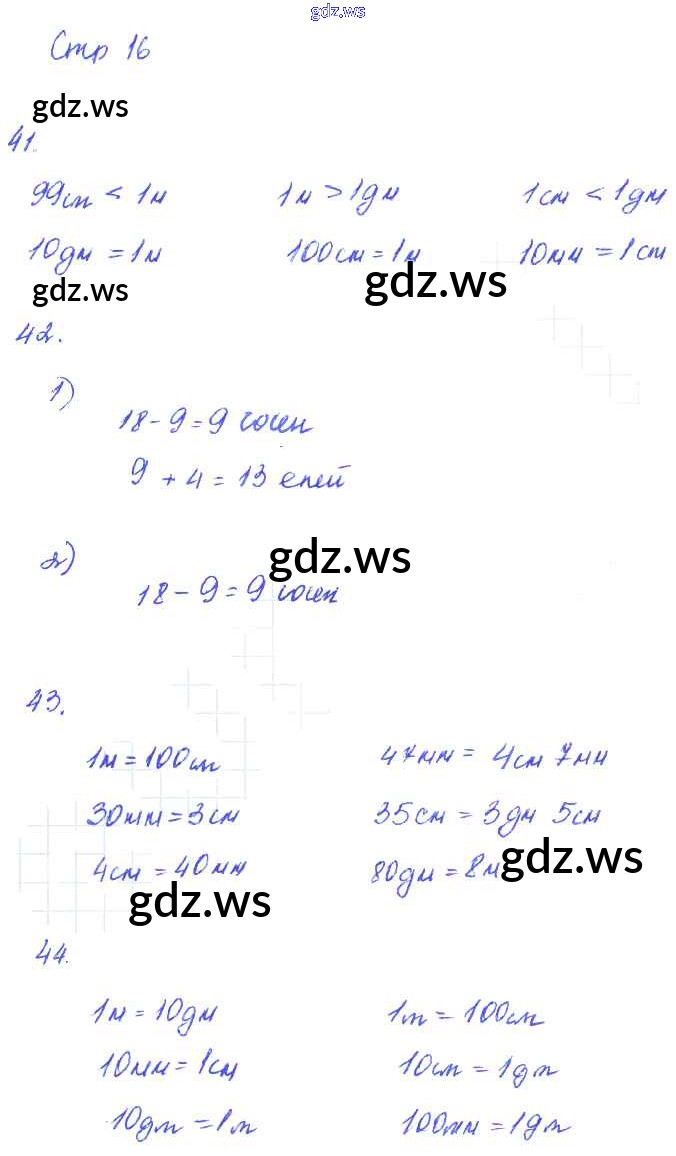 gdz.ws
Стр 16
gdz.ws
41.
99см < 1м 1м > 1дм 1см < 1дм
10дм = 1м 100см = 1м 10мм = 1см
gdz.ws
gdz.ws
42.
1)
18 - 9 = 9 сосен
9 + 4 = 13 елей
gdz.ws
2)
18 - 9 = 9 сосен
43.
1м = 100см 47мм = 4см 7мм
30мм = 3см 35см = 3дм 5см
gdz.ws
4см = 40мм 80дм = 8м
gdz.ws
44.
1м = 10дм 1м = 100см
10мм = 1см 10см = 1дм
10дм = 1м 100мм = 1дм